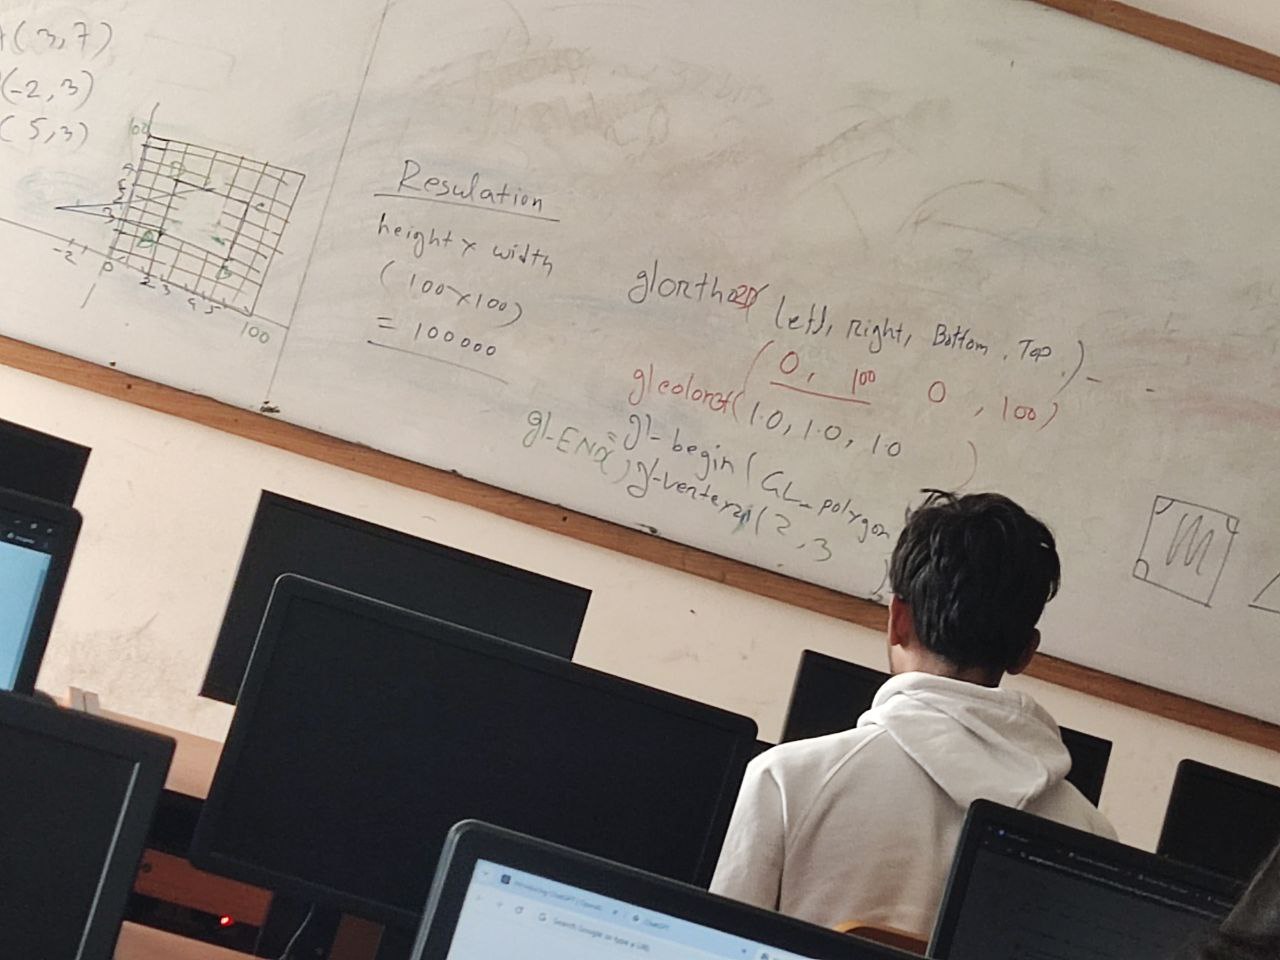 (3,7)
(-2,3)
(5,3)
-2 0 2 3 4 5 100
Resulation
height x width
(100x100)
= 100000
glortho2D( left, Right, Bottom, Top, ) - -
(0, 100 0, 100)
glcolor3f(1.0, 1.0, 1.0 )
gl-begin(GL-polygon
gl-END(); gl-vertex2i(2,3
Introducing ChatGPT | OpenAI
ChatGPT
Search Google or type a URL